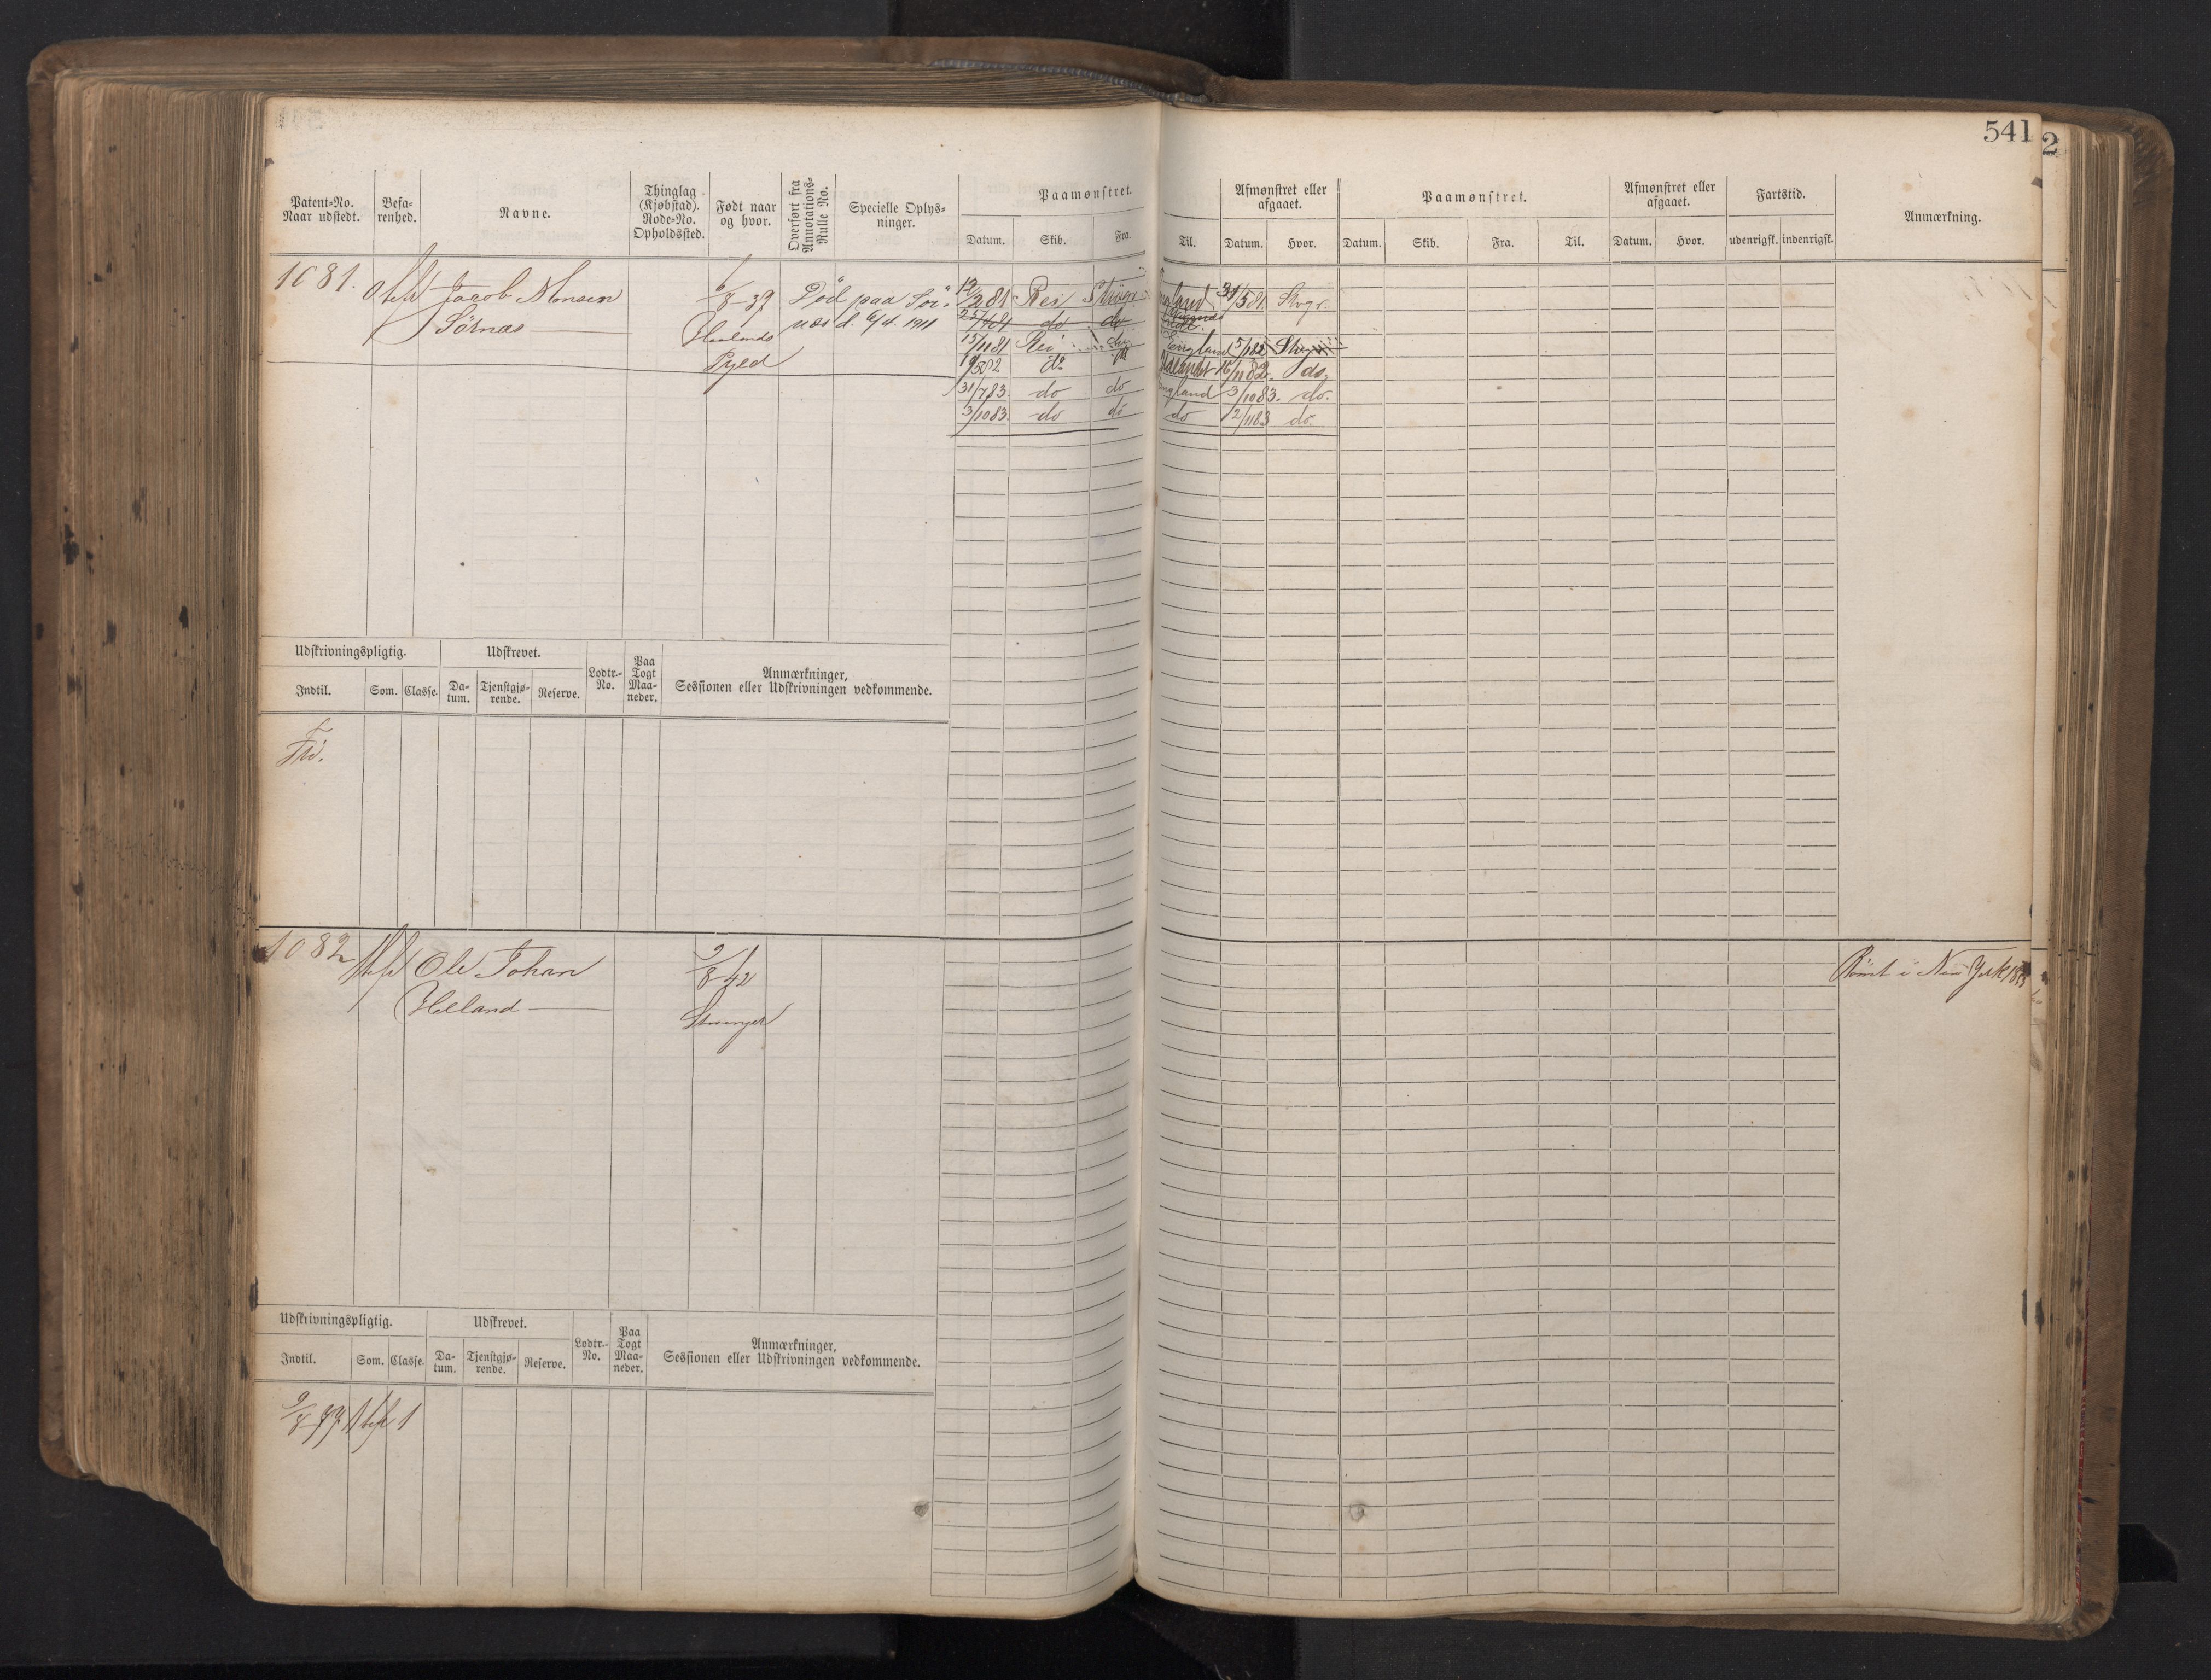 541
2
Patent-No.
Naar udstedt.
Befa-
renhed.
Navne.
Thinglag
(Kjøbstad).
Rode-No.
Opholdssted.
Født naar
og hvor.
Overført fra
Annotations-
Rulle No.
Specielle Oplys-
ninger.
Paamønstret.
Datum.
Skib.
Fra.
Til.
Afmønstret eller
afgaaet.
Datum.
Hvor.
Paamønstret.
Datum.
Skib.
Fra.
Til.
Afmønstret eller
afgaaet.
Datum.
Hvor.
Fartstid.
udenrigsk.
indenrigsk.
Anmærkning.
1081.
Jacob Monsen
Sörnæs
6/8-37
Død paa Sör-
næs d. 6/4. 1911
12/2 81 Rei
31/5 81. Stvgr.
do do
15/11 81 Rei do
England 5/1 82
do
Udlandet 16/11 82. do.
31/7 83. do do
England 3/10 83. do.
3/10 83. do do
do 12/11 83 do.
Udskrivningspligtig.
Indtil.
Som.
Classe.
Udskrevet.
Da-
tum.
Tjenstgjø-
rende.
Reserve.
Lodtr.-
No.
Paa
Togt
Maa-
neder.
Anmærkninger,
Sessionen eller Udskrivningen vedkommende.
Fri.
1082
Ole Johan
Helland
9/8-42
Stavanger
Römt i New York
Udskrivningspligtig.
Indtil.
Som.
Classe.
Udskrevet.
Da-
tum.
Tjenstgjø-
rende.
Reserve.
Lodtr.-
No.
Paa
Togt
Maa-
neder.
Anmærkninger,
Sessionen eller Udskrivningen vedkommende.
9/8-77 1